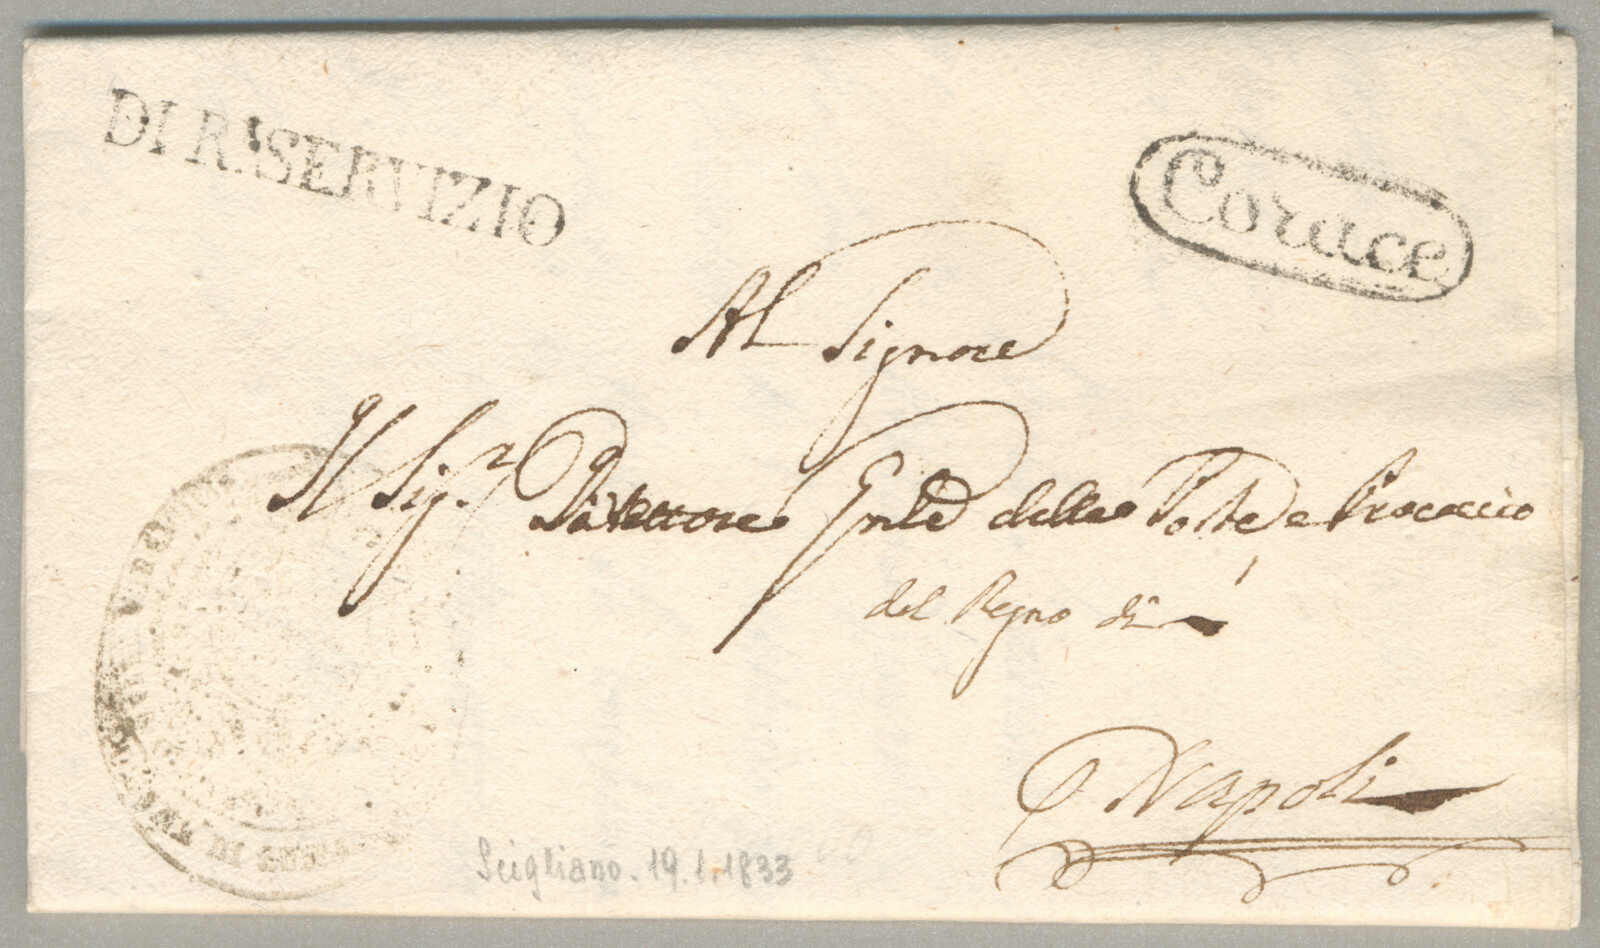 DI R.ˡ SERVIZIO
Corace
Al Signore
Il Sig.ʳ Direttore Gnle delle Poste e Procaccio
del Regno di
Napoli
Scigliano. 19.1.1833